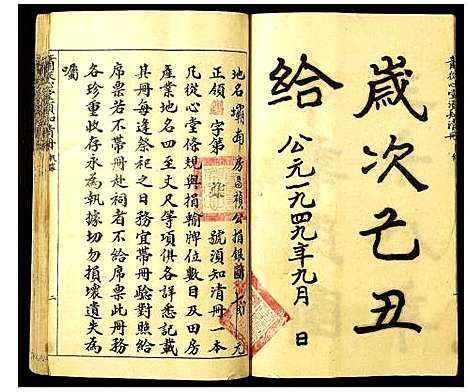 歲次己丑
給
公元一九四九年九月 日
地名壩南房昌積公捐銀圓 元
正領 字第 號須知清冊一本
凡從心堂條規與捐輸牌位數目及田房
產業地名四至丈尺等項俱各詳悉記載
其冊每逢祭祀之日務宜帶冊驗對照給
席票若不帶冊赴祠者不給席票此冊務
各珍重收存永為執據切勿損壞遺失為
囑